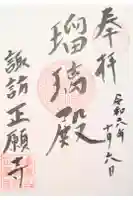 奉拝
令和六年
十月六日
瑠璃殿
諏訪正願寺